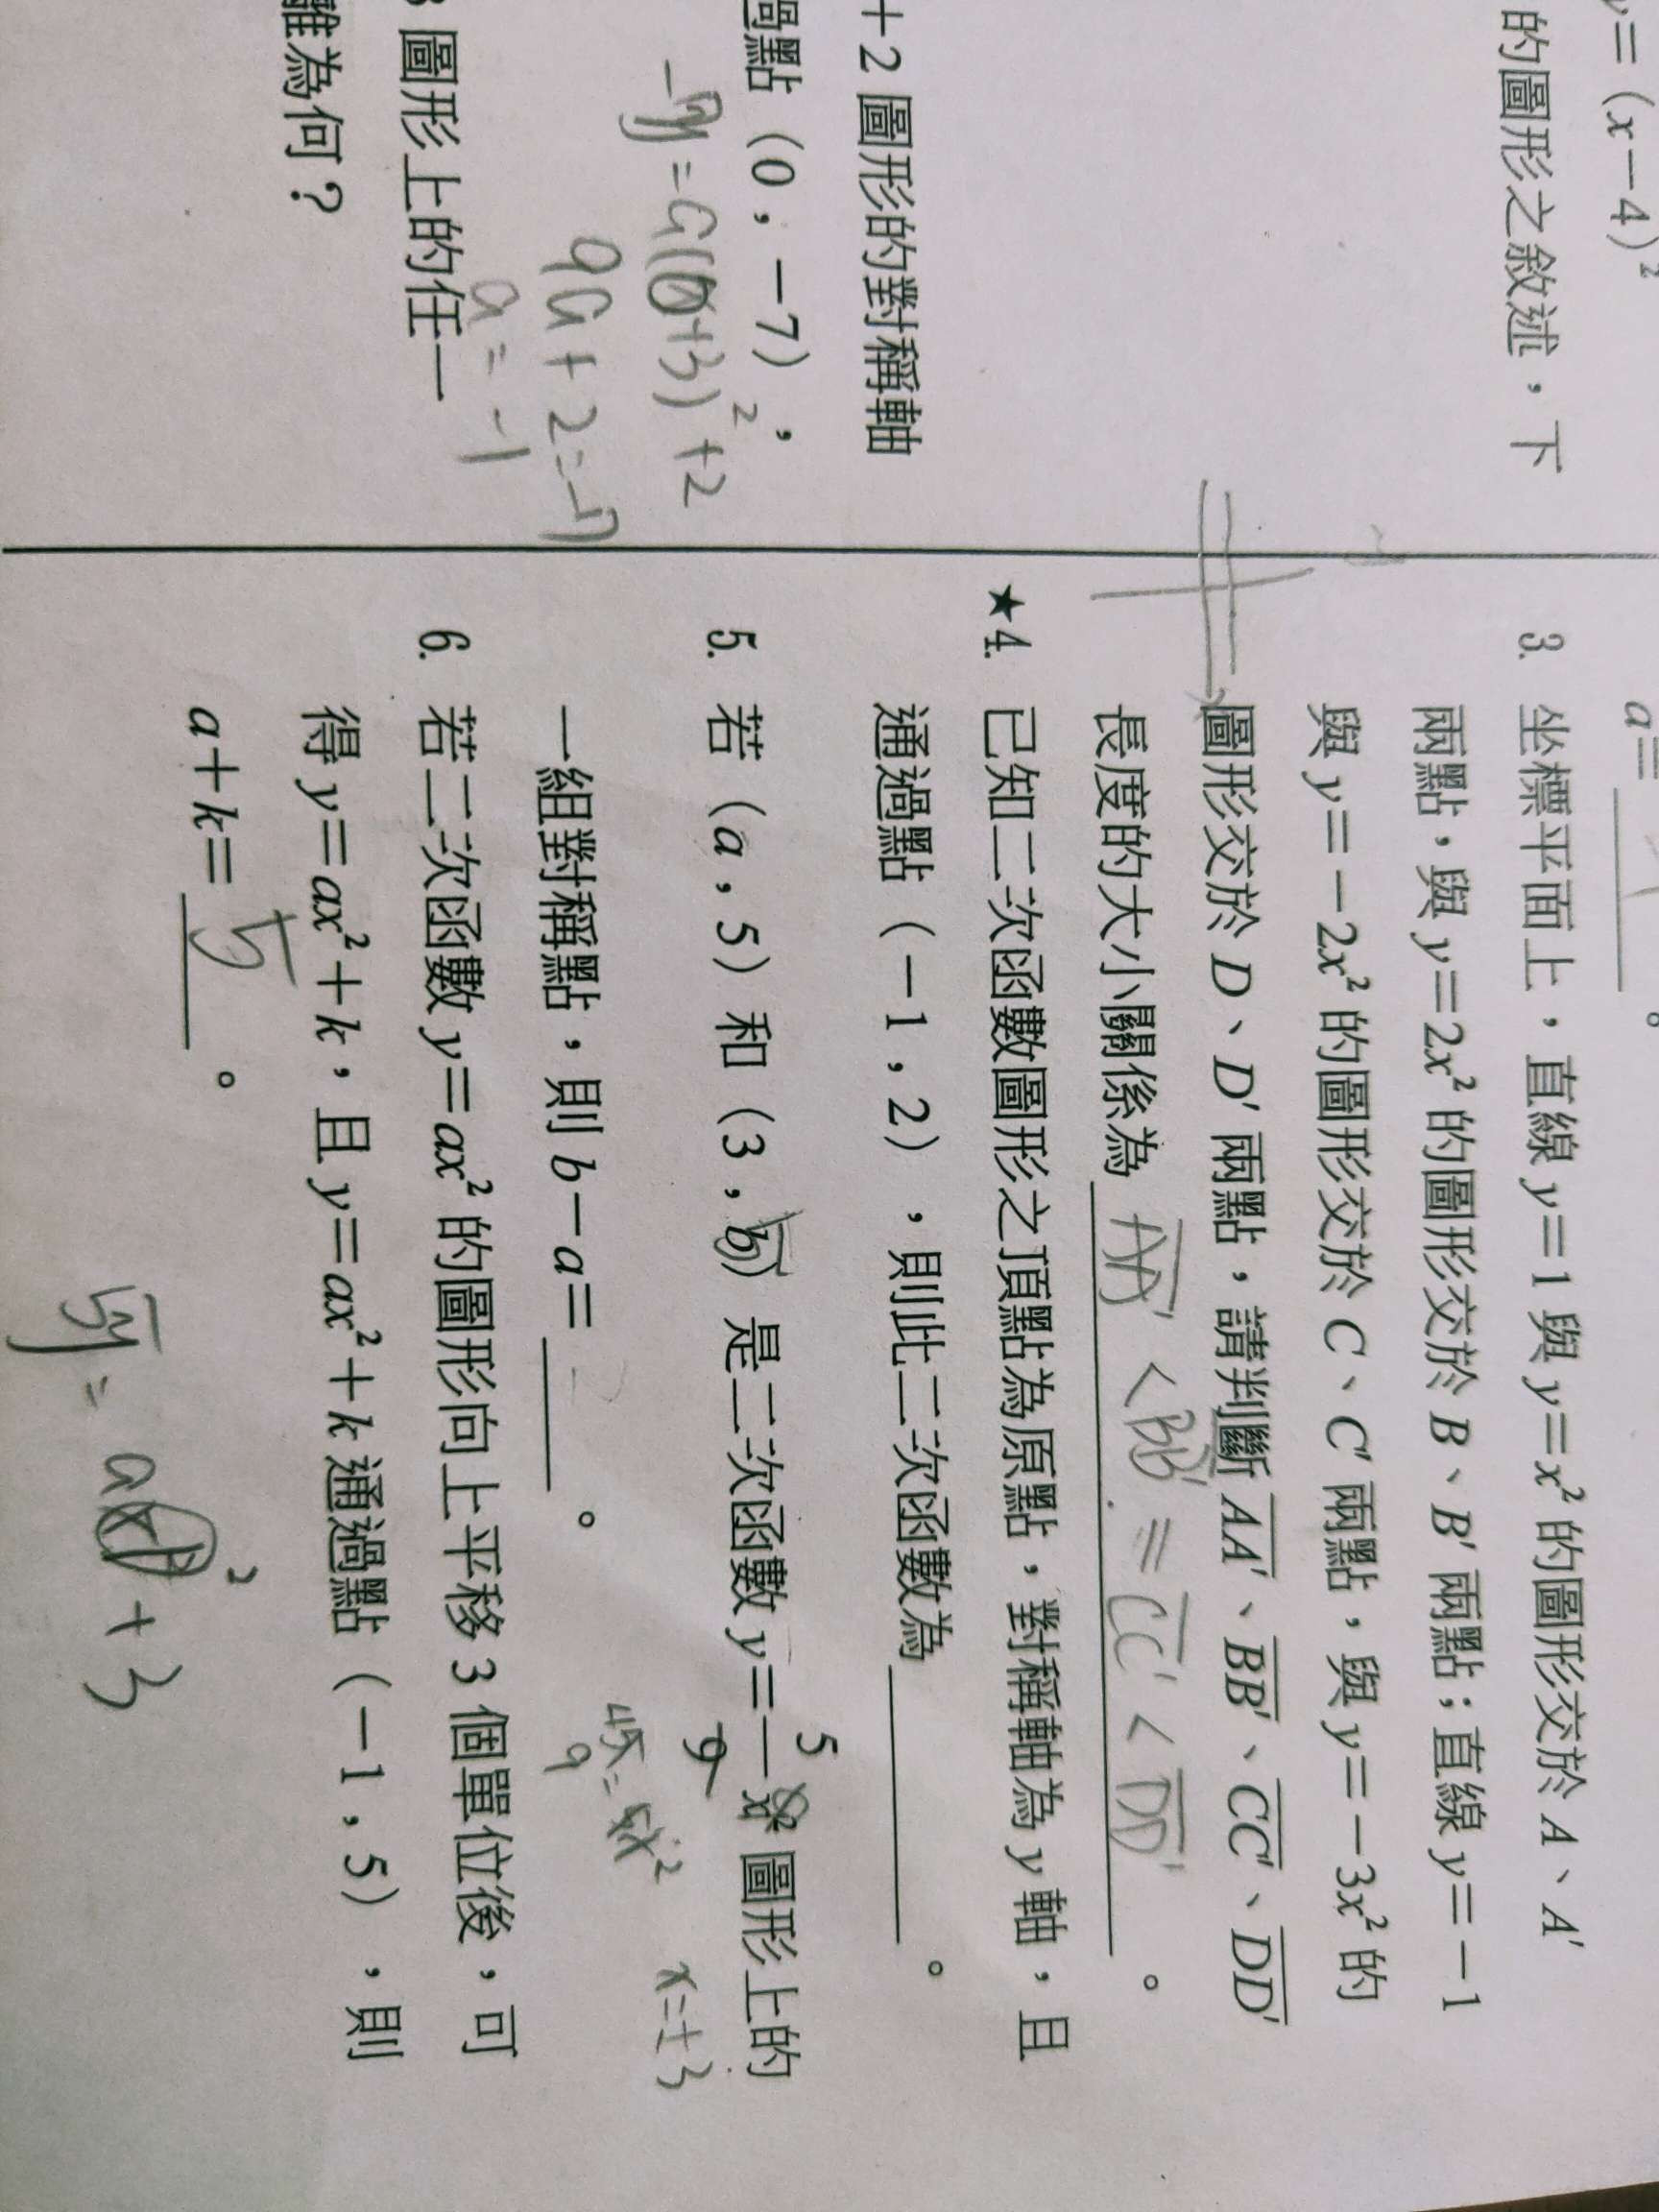 y=(x-4)²
的圖形之敘述,下
+2 圖形的對稱軸
過點(0,-7),
-7=a(0+3)²+2
9a+2=-7
a=-1
圖形上的任一
離為何?
a=
。
3. 坐標平面上,直線 y=1 與 y=x² 的圖形交於 A、A'
兩點,與 y=2x² 的圖形交於 B、B' 兩點;直線 y=-1
與 y=-2x² 的圖形交於 C、C' 兩點,與 y=-3x² 的
圖形交於 D、D' 兩點,請判斷 AA'、BB'、CC'、DD'
長度的大小關係為 AA' < BB' = CC' < DD' 。
★4. 已知二次函數圖形之頂點為原點,對稱軸為 y 軸,且
通過點(-1,2),則此二次函數為 。
5. 若(a,5)和(3,b)是二次函數 y=5/9 x² 圖形上的
45/9=x²
x=±3
一組對稱點,則 b-a= 。
6. 若二次函數 y=ax² 的圖形向上平移 3 個單位後,可
得 y=ax²+k,且 y=ax²+k 通過點(-1,5),則
a+k= 5 。